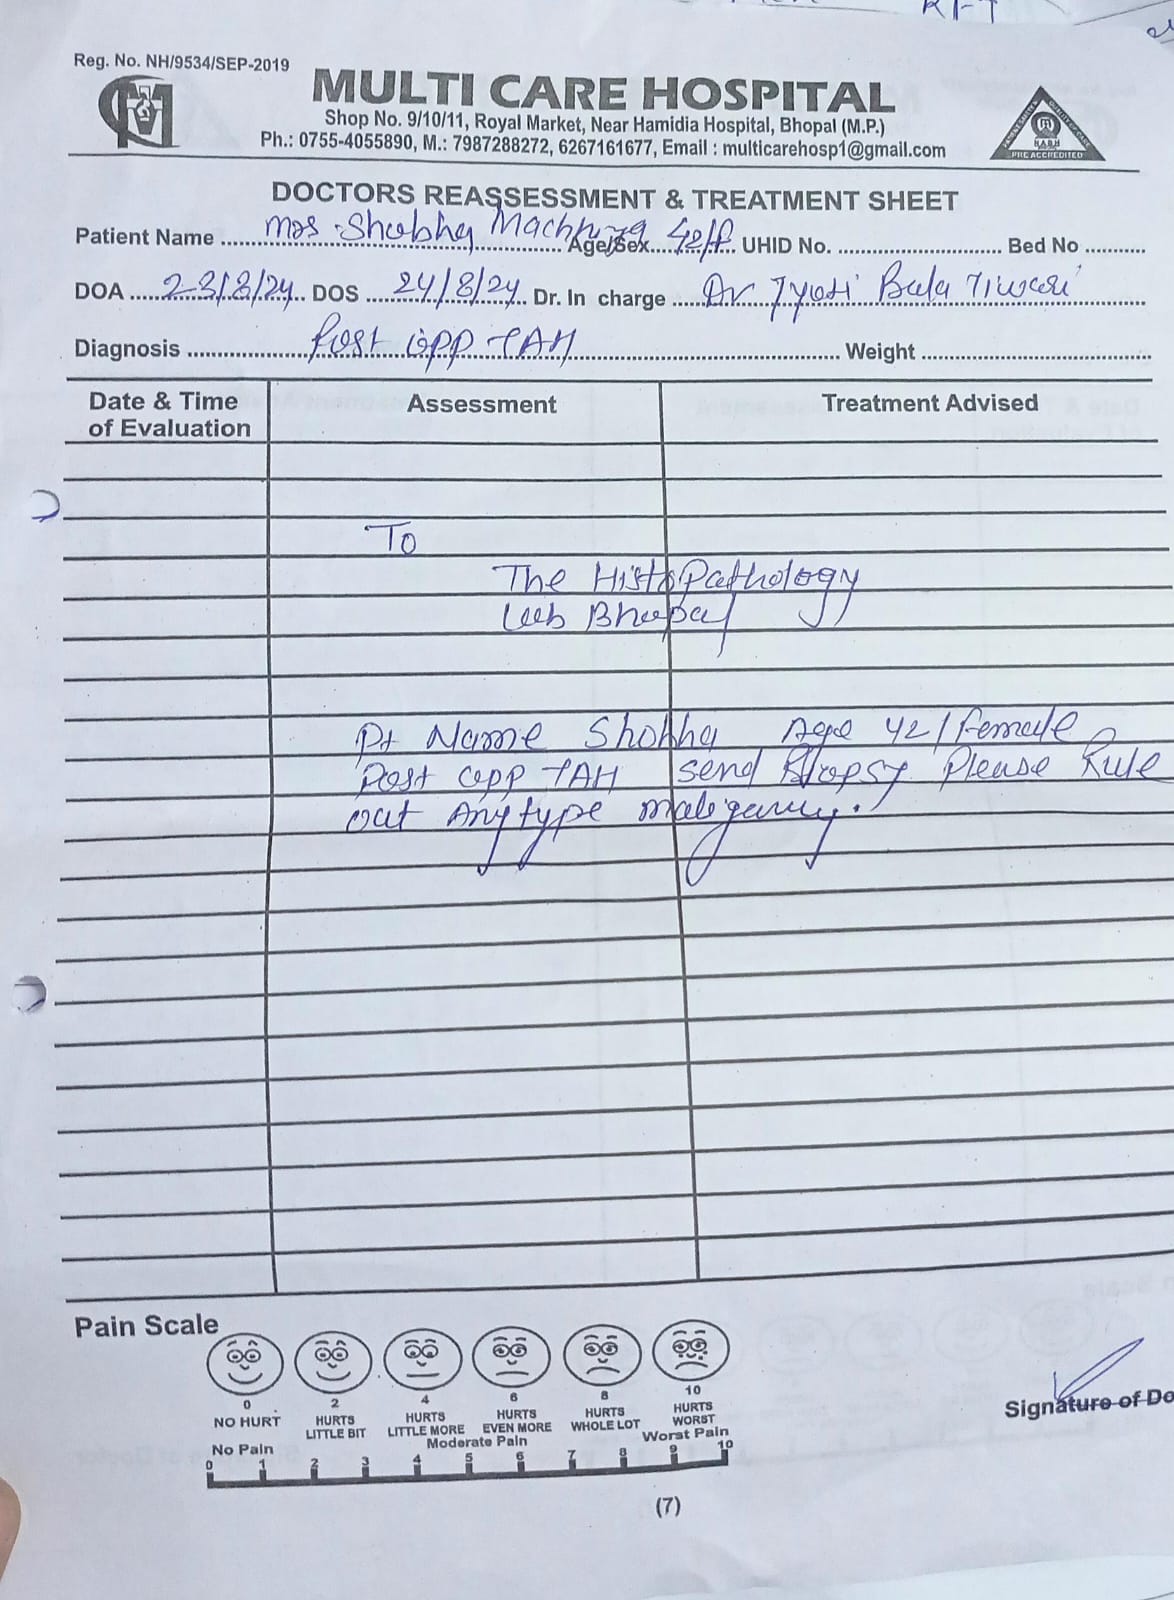 RFT
Reg. No. NH/9534/SEP-2019
MULTI CARE HOSPITAL
Shop No. 9/10/11, Royal Market, Near Hamidia Hospital, Bhopal (M.P.)
Ph.: 0755-4055890, M.: 7987288272, 6267161677, Email : multicarehosp1@gmail.com
PRE ACCREDITED
DOCTORS REASSESSMENT & TREATMENT SHEET
Patient Name Mrs. Shobha Age/Sex 42/f UHID No. Bed No
DOA 23/8/24 DOS 24/8/24 Dr. In charge Dr Jyoti Bala Tiwari
Diagnosis Post opp TAH Weight
Date & Time of Evaluation Assessment Treatment Advised
To
The HistoPathology
Lab Bhopal
Pt Name Shobha Age 42/Female
Post opp TAH send Biopsy Please Rule
out Any type
Pain Scale
0 2 4 6 8 10
NO HURT HURTS LITTLE BIT HURTS LITTLE MORE HURTS EVEN MORE HURTS WHOLE LOT HURTS WORST
No Pain Moderate Pain Worst Pain
0 1 2 3 4 5 6 7 8 9 10
Signature of Do
(7)